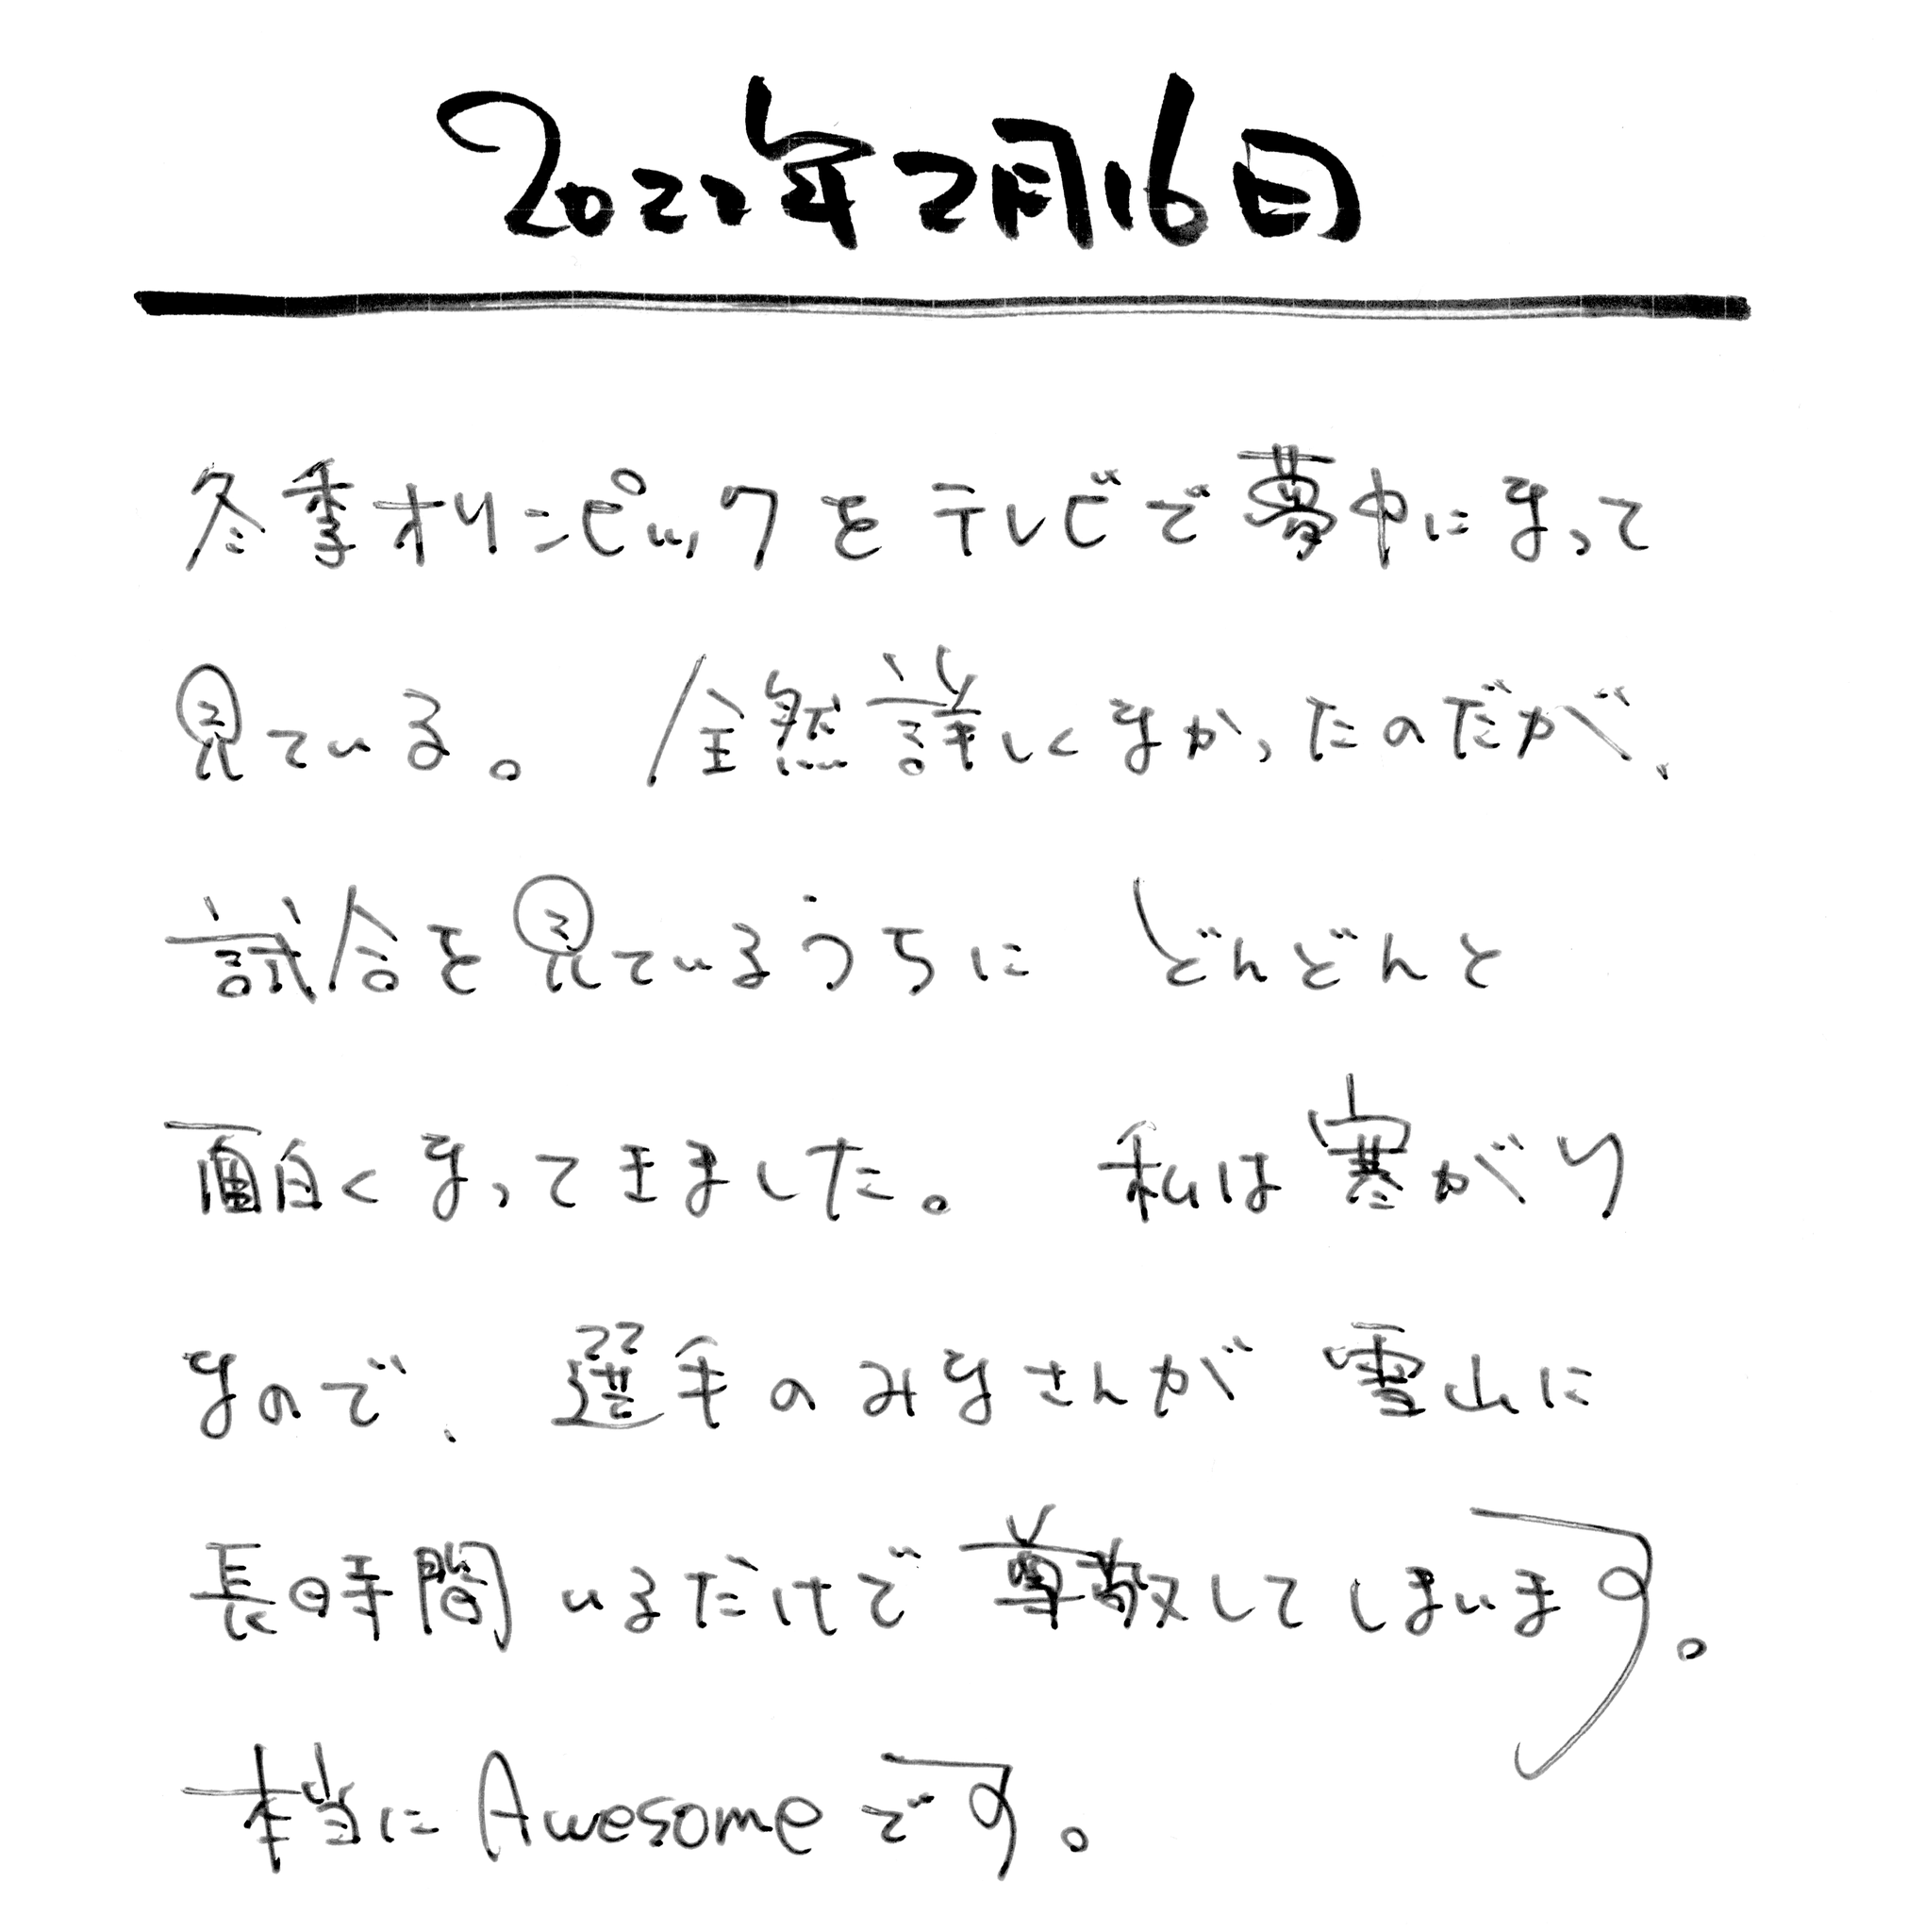 2022年2月16日
冬季オリンピックをテレビで夢中になって
見ている。 全然詳しくなかったのだが、
試合を見ているうちに どんどんと
面白くなってきました。 私は寒がり
なので、 選手のみなさんが 雪山に
長時間いるだけで 尊敬してしまいます。
本当に Awesome です。